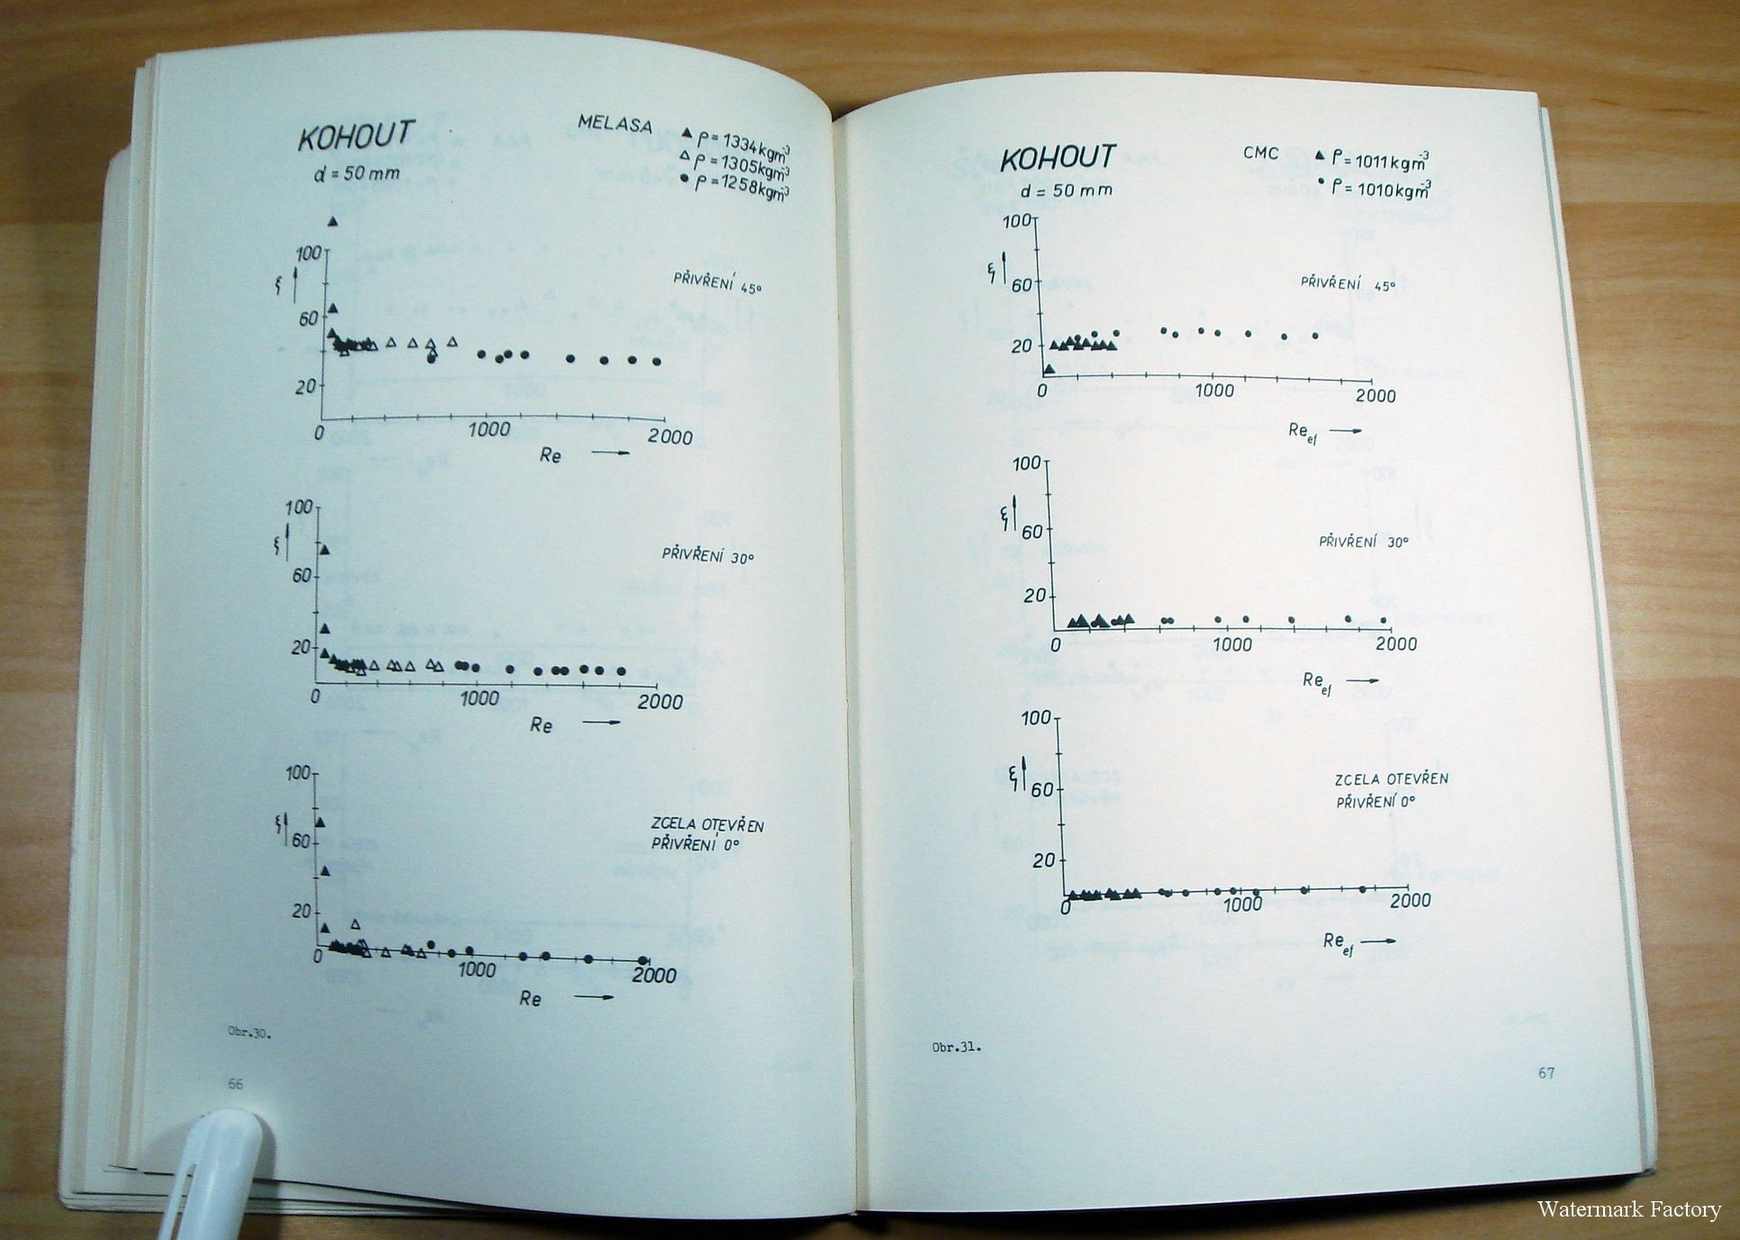 KOHOUT
d = 50 mm
MELASA
▲ ρ = 1334 kgm⁻³
△ ρ = 1305 kgm⁻³
● ρ = 1258 kgm⁻³
100
ξ
60
20
0 1000 2000
Re
PŘIVŘENÍ 45°
100
ξ
60
20
0 1000 2000
Re
PŘIVŘENÍ 30°
100
ξ
60
20
0 1000 2000
Re
ZCELA OTEVŘEN
PŘIVŘENÍ 0°
Obr.30.
66
KOHOUT
d = 50 mm
CMC
▲ ρ = 1011 kgm⁻³
● ρ = 1010 kgm⁻³
100
ξ
60
20
0 1000 2000
Re ef
PŘIVŘENÍ 45°
100
ξ
60
20
0 1000 2000
Re ef
PŘIVŘENÍ 30°
100
ξ
60
20
0 1000 2000
Re ef
ZCELA OTEVŘEN
PŘIVŘENÍ 0°
Obr.31.
67
Watermark Factory